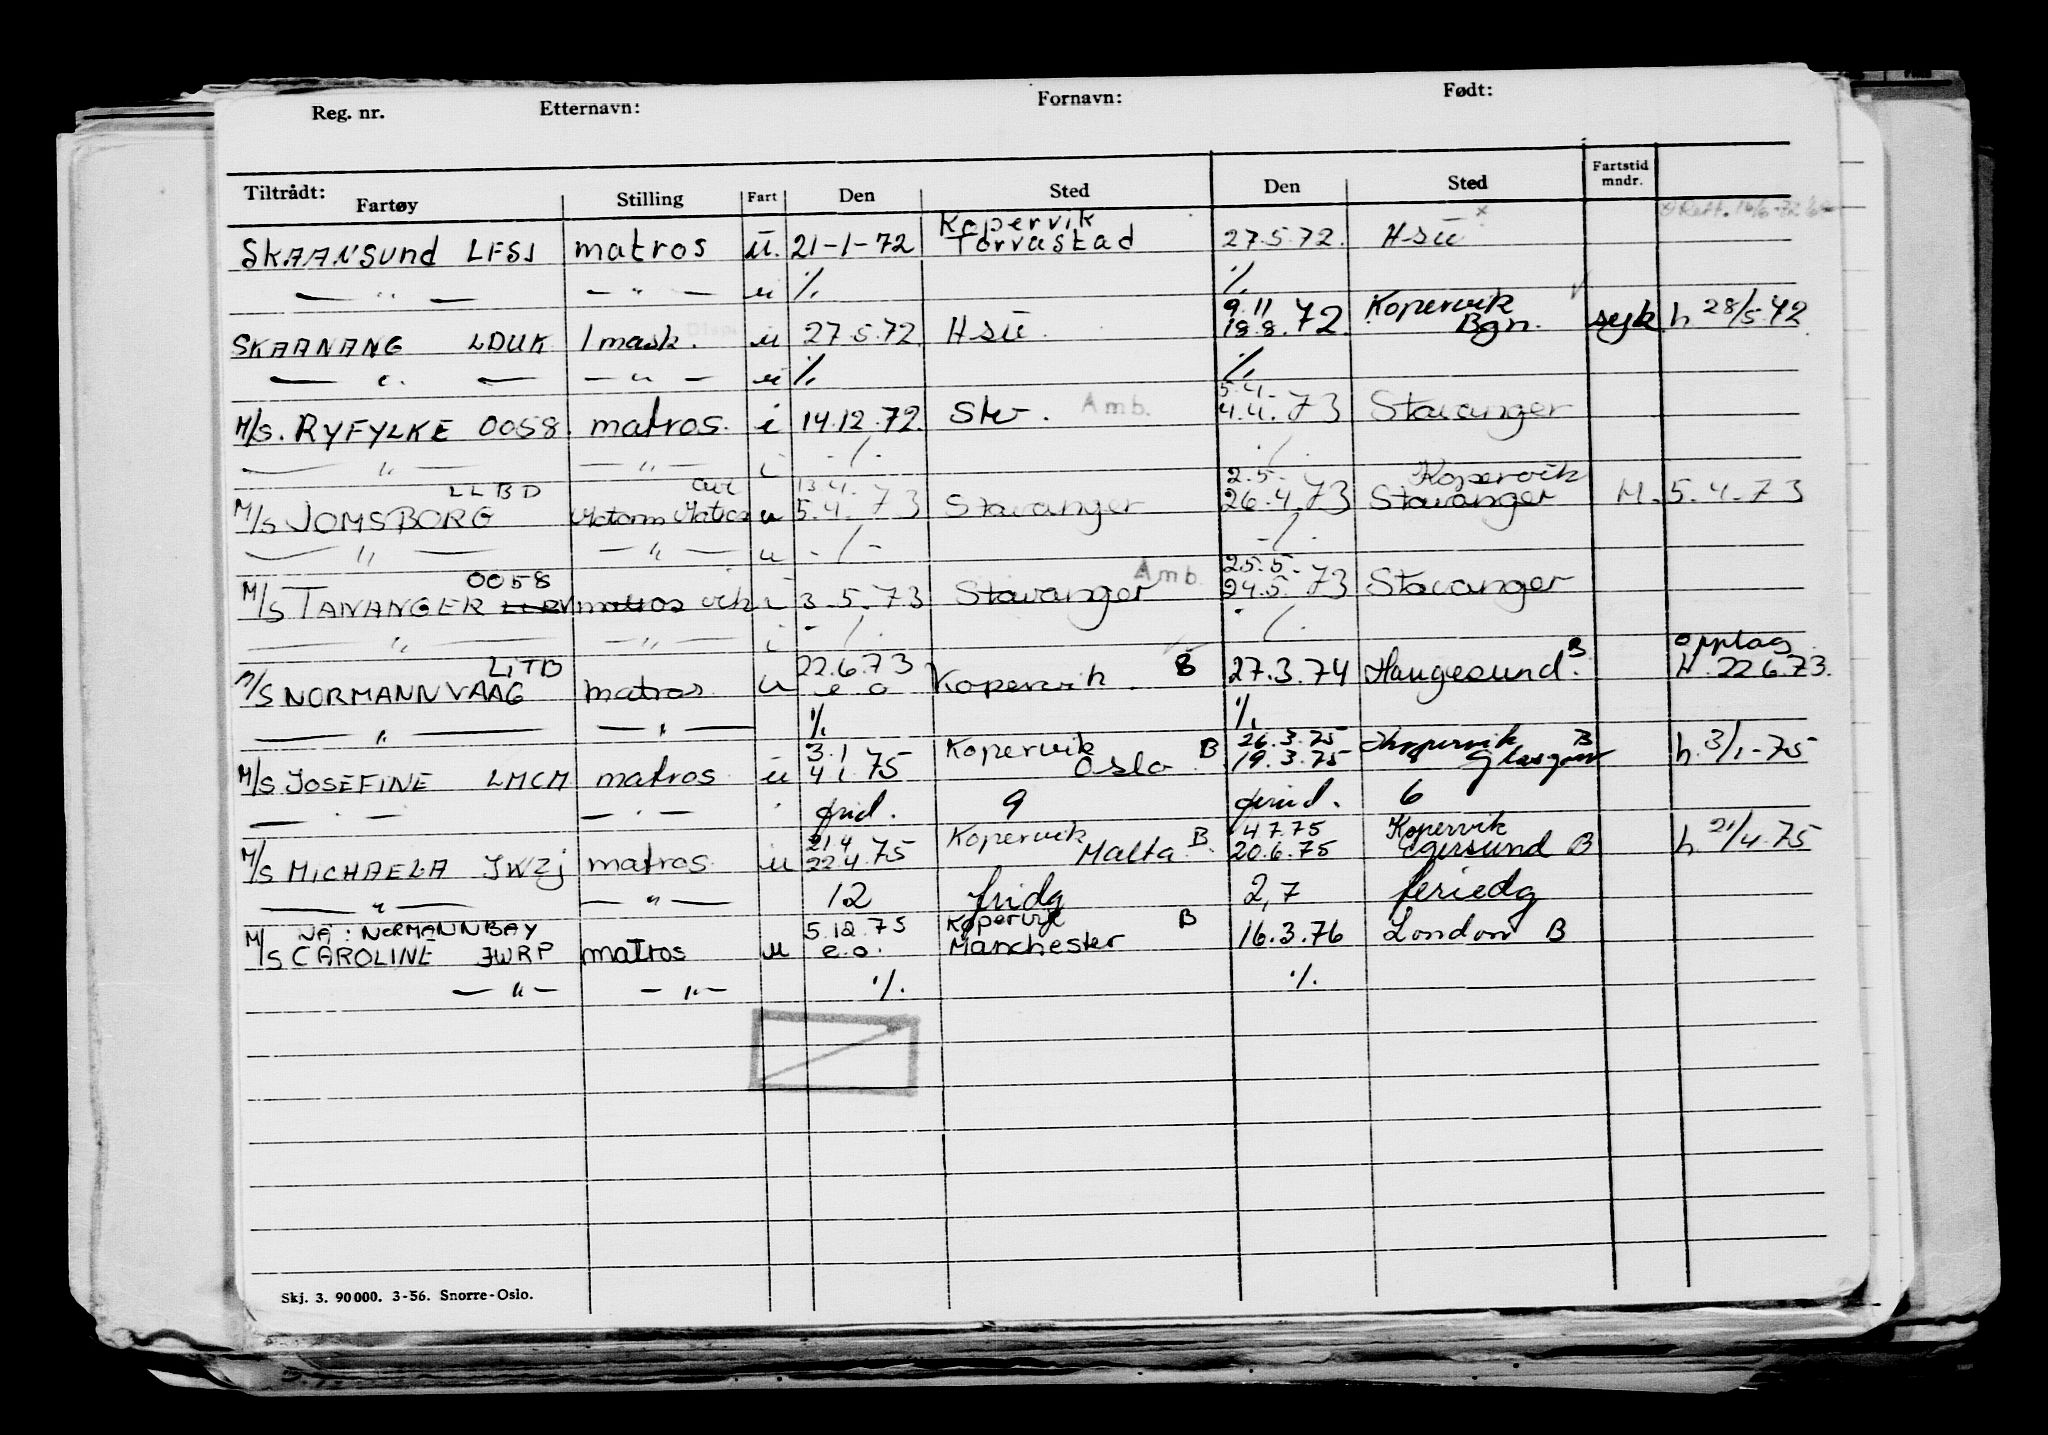 Reg. nr. Etternavn: Fornavn: Født:
Tiltrådt: Fartøy Stilling Fart Den Sted Den Sted Fartstid mndr.
Kopervik
SKAANSUND LFSJ matros u. 21-1-72 Torvastad 27.5.72. Hsu x
— " — — " — u ./. ./.
9.11 Kopervik
SKAANANG LDUK 1 mask. u 27.5.72. Hsu. 18.8.72. Bgn. syk h 28/5.72.
— " — — " — u ./. ./.
5.4.
M/S. RYFYLKE 0058. matros. i 14.12.72. Stv. Amb. 4.4.73 Stavanger
— " — — " — i ./. ./.
LLBD 13.4. 2.5. Kopervik
M/S JOMSBORG u 5.4.73 Stavanger 26.4.73 Stavanger H. 5.4.73
— " — — " — u -/- -/-
0058 Amb. 25.5.
M/S TANANGER matros i 3.5.73 Stavanger 24.5.73 Stavanger
— " — — " — i -/. -/.
LITB 22.6.73 opplag
M/S NORMANNVAAG matros u e o Kopervik B 27.3.74 Haugesund. B H. 22.6.73.
— " — — " — ./. ./.
3.1 Kopervik 26.3.75 Kopervik B
M/S JOSEFINE LMCM matros u 4.1.75 Oslo B 19.3.75 Glasgow h. 3/1-75
— " — — " — frid. 9 ferid. 6
21.4 Kopervik 4.7.75 Kopervik
M/S MICHAELA JWZJ matros u 22.4.75 Malta B. 20.6.75 Egersund B h 21/4.75
— " — — " — 12 fridg 2,7 feriedg
NÅ: NORMANNBAY 5.12.75 Kopervik B
M/S CAROLINE JWRP matros u e.o. Manchester 16.3.76 London B
— " — — " — ./. ./.
Skj. 3. 90000. 3-56. Snorre-Oslo.